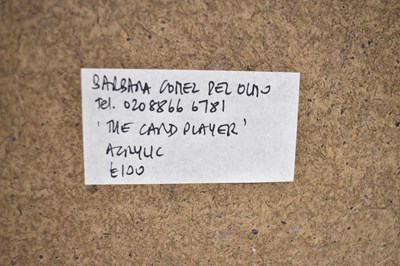 BARBARA GOMEZ DEL OLMO
Tel. 0208866 6781
'THE CARD PLAYER'
ACRYLIC
£100